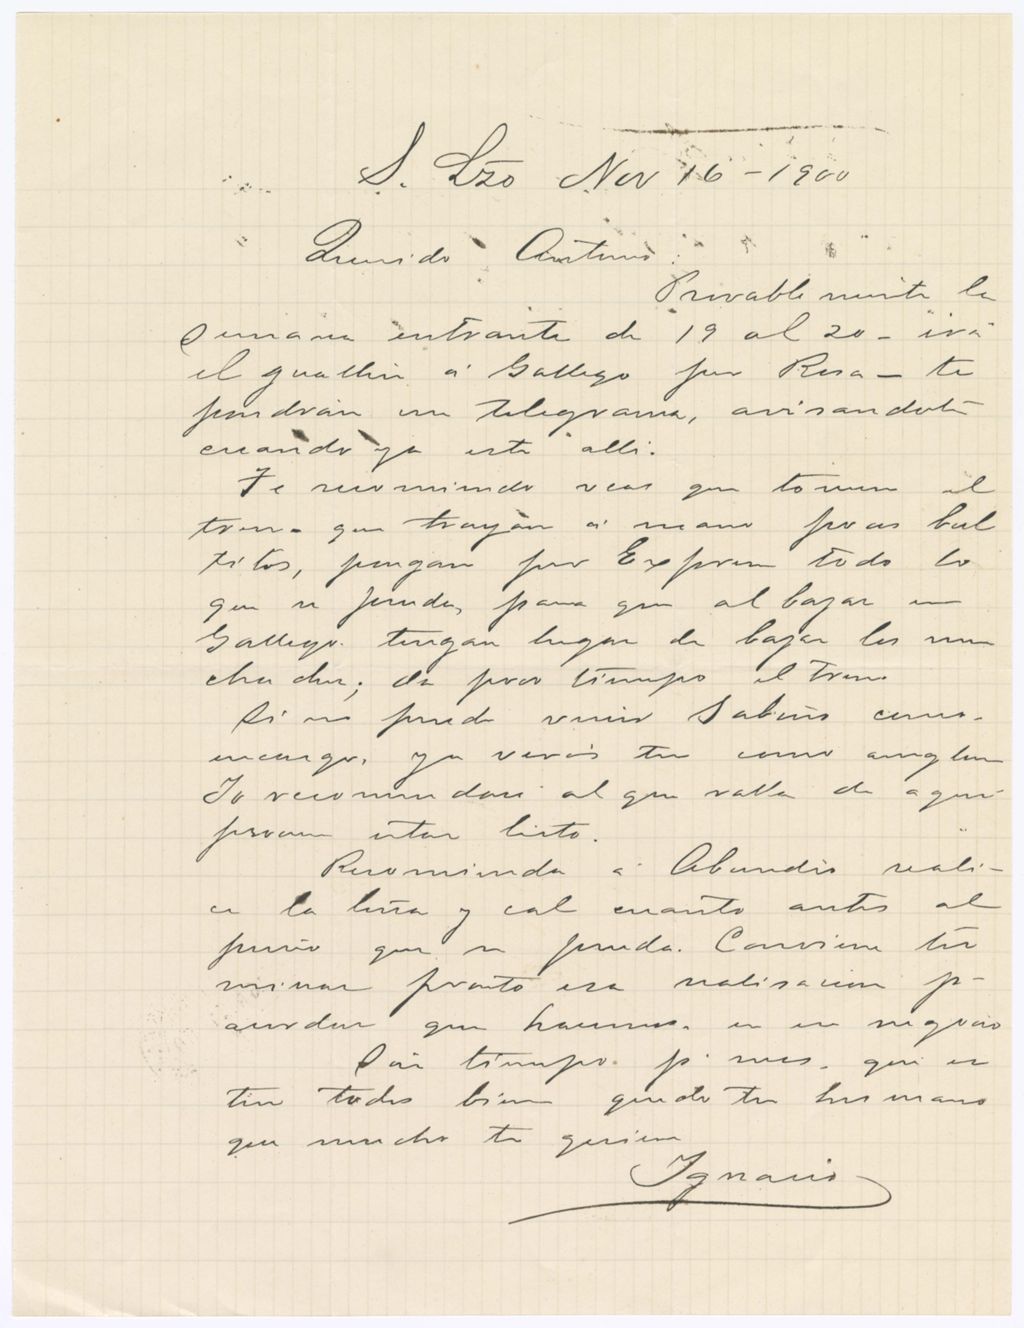 S. Lzo Nov 16 - 1900
Querido Antonio:
Provablemente la
semana entrante de 19 al 20 - irá
el guallin á Gallego por Rosa - te
pondrán un telegrama, avisandote
cuando ya esté alli.
Te recomiendo veas que tomen el
tren - que traygan á mano pocos bul
titos, pongan por Expres todo lo
que se pueda, para que al bajar en
Gallego. tengan lugar de bajar los mu
chachos; da poco tiempo el tren.
Si no puede venir Sabino como
encargo, ya verás tu como arreglan
Yo recomendaré al que valla de aqui
procure estar listo.
Recomienda á Abundio reali-
ce la leña y cal cuanto antes al
precio que se pueda. Conviene ter
minar pronto esa realisacion p-
acordar que hacemos. en ese negocio
Sin tiempo p. mas. que es
ten todos bien queda tu hermano
que mucho te quiere
Ignacio